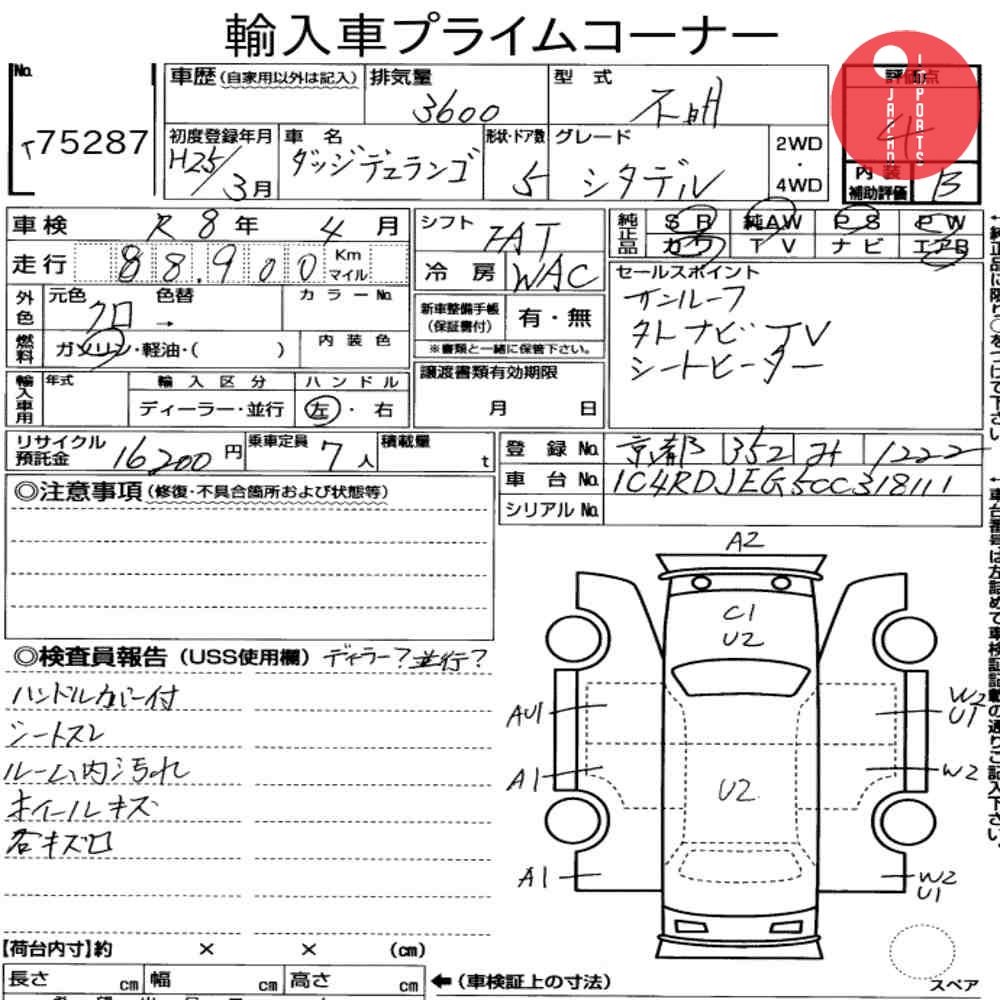 輸入車プライムコーナー
No. 75287
車歴(自家用以外は記入) 排気量 3600 型式 不明 評価点 4
JAPAN IMPORTS
初度登録年月 H25/3月 車名 ダッジデュランゴ 形状・ドア数 5 グレード シタデル 2WD・4WD 内装補助評価 B
車検 R8年4月 シフト FAT 純正品 SR 純AW PS PW
カワ TV ナビ エアB
走行 88,900 Km マイル 冷房 WAC
外色 元色 クロ 色替 → カラーNo.
燃料 ガソリン・軽油・( ) 内装色
新車整備手帳(保証書付) 有・無
※書類と一緒に保管下さい。
セールスポイント
サンルーフ
外ナビ TV
シートヒーター
輸入車用 年式 輸入区分 ハンドル
ディーラー・並行 左・右
譲渡書類有効期限
月 日
リサイクル預託金 16200円 乗車定員 7人 積載量 t
登録No. 京都 352 1222
車台No. 1C4RDJEG5CC318111
シリアルNo.
◎注意事項(修復・不具合箇所および状態等)
◎検査員報告(USS使用欄) ディラー?並行?
ハンドルカバー付
シートスレ
ルーム内汚れ
ホイールキズ
各キズ凹
A2
C1
U2
AU1
W2
U1
A1
W2
U2
A1
W2
U1
スペア
【荷台内寸】約 × × (cm)
長さ cm 幅 cm 高さ cm ←(車検証上の寸法)
←純正品に限り○をつけて下さい。
←車台番号は左詰めで車検証記載の通りご記入下さい。